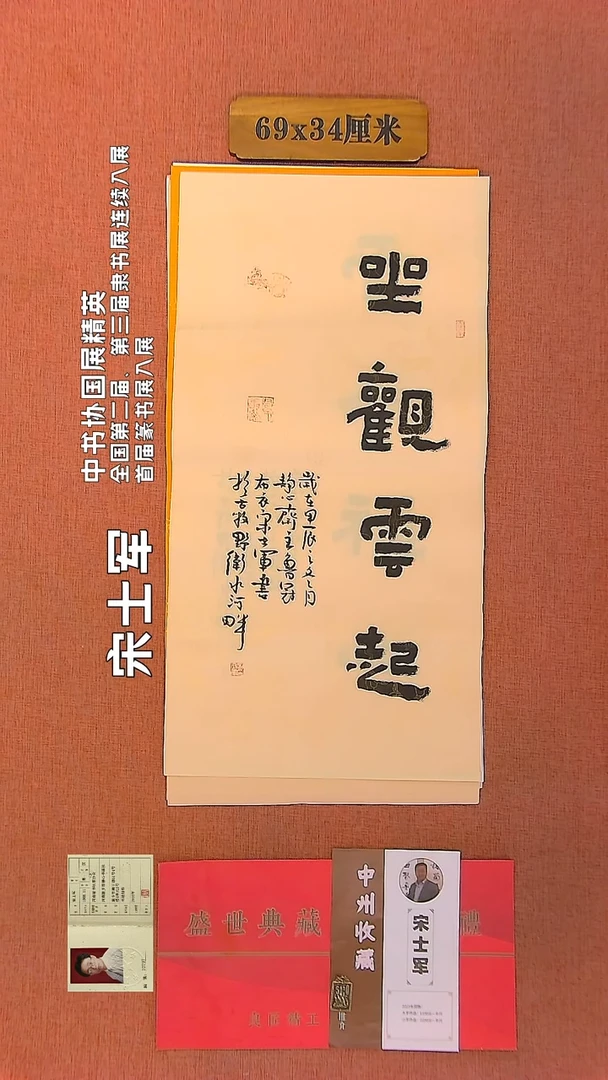 69x34厘米
坐觀雲起
歲在甲辰之文月
靜心齋主魯冠
布衣宋士軍書
於古牧野衛水河畔
中书协国展精英
全国第二届、第三届隶书展连续入展
首届篆书展入展
宋士军
盛世典藏
禮
中州收藏
宋士军